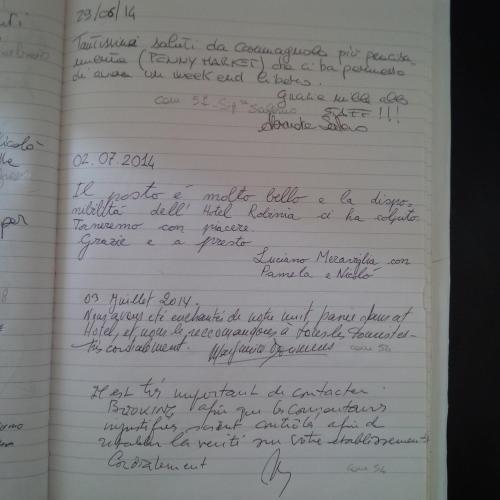 29/06/14
Tantissimi saluti da Caramagnola più precisa-
mente (PENNY MARKET) che ci ha permesso
di avere un week end libero.
Grazie mille allo
STAFF!!!
cam 51
02.07.2014
Il posto è molto bello e la dispo-
nibilità dell'Hotel Robinia ci ha colpito.
Torneremo con piacere.
Grazie e a presto
Luciano Meraviglia con
Pamela e Nicolò
03 Juillet 2014.
Nous avons été enchantés de notre nuit passée dans cet
Hotel, et nous le recommandons à tous les touristes
très cordialement. Marguerite cam 52
Il est très important de contacter
BOOKING afin que les commentaires
injustifiés soient contrôlés afin de
rétablir la vérité sur votre établissement
Cordialement
cam 54